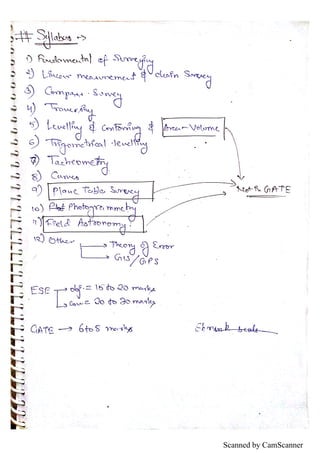 # Syllabus →
1) Fundamental of Surveying
2) Linear measurement & chain Survey
3) Compass Survey
4) Traversing
5) Levelling & Contouring & Area - Volume
6) Trigometrical levelling
7) Tacheometry
8) Curves
9) Plane Table Survey
Not in GATE
10) Photogrammetry
11) Field Astronomy
12) Other
→ Theory of Error
→ GIS/GPS
ESE → obj. = 15 to 20 marks
→ = 20 to 30 marks
GATE → 6 to 8 marks
Scanned by CamScanner